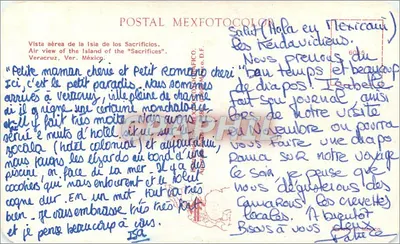 POSTAL MEXFOTOCOLOR
Vista aérea de la Isla de los Sacrificios.
Air view of the Island of the "Sacrifices".
Veracruz, Ver. México.
"Petite maman chérie et Petit Romano chéri
Ici, c'est le petit paradis. Nous sommes
arrivés à Veracruz, ville pleine de charme
où il règne une certaine nonchalance
elle fait très
nuits d'hôtel
zocalo (hotel colonial) et aujourd'hui,
nous faisons les lézards au bord d'une
piscine, en face de la mer. Il y a des
cocotiers qui nous entourent et le soleil
cogne dur. En un mot tout va très
bien. Je vous embrasse très très fort
et je pense beaucoup à vous.
Isa
Salut (Hola en Mexicain)
les
Nous prenons du
bon temps et beaucoup
de diapos! Isabelle
fait son journal ainsi
de notre visite
ou pourra
vous faire une diapo
rama sur notre voyage
Ce soir je pense que
nous dégusterons des
Camarones, les crevettes
locales. A bientôt
Bisous à vous deux